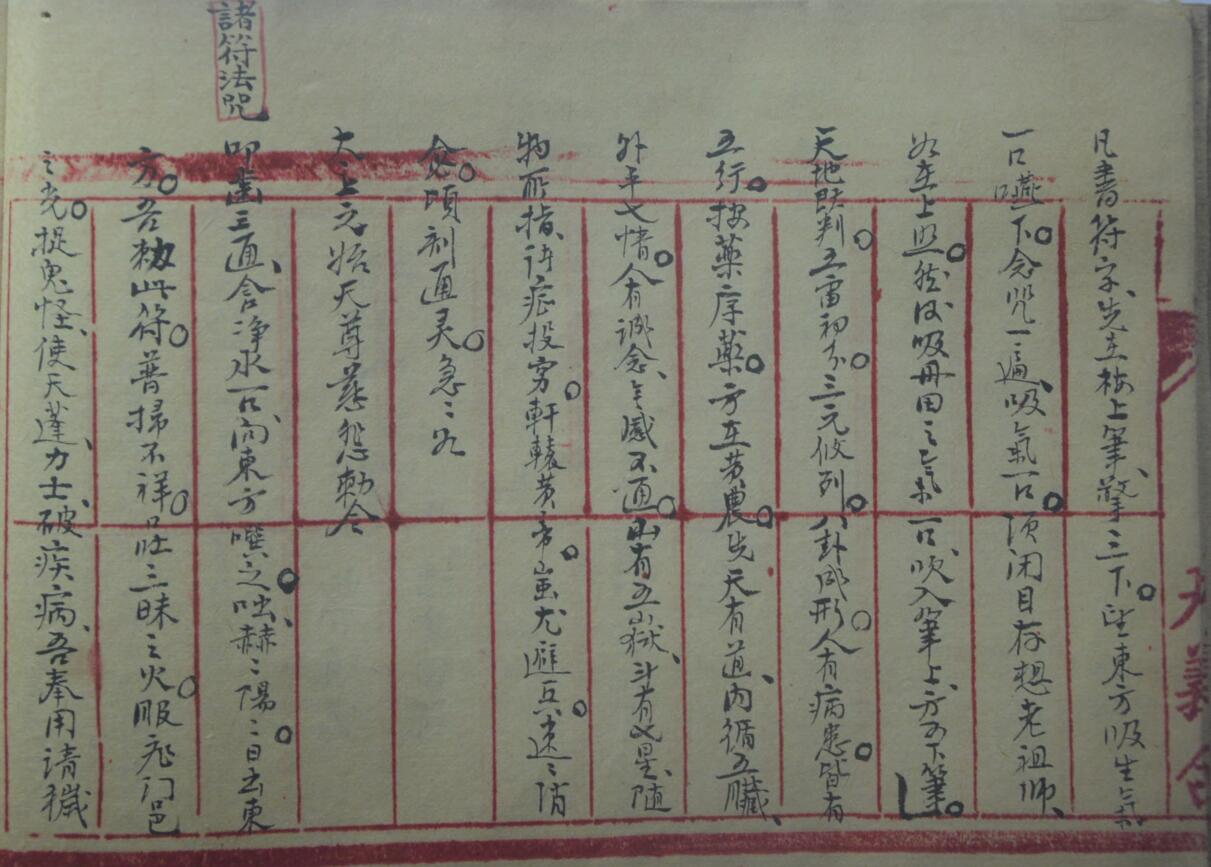 凡書符字、先在桉上筆、擎三下。望東方吸生氣
一口嚥下。念咒一遍、吸氣一口。須闭目存想老祖师、
如在上照。然後吸丹田之气一口、吹入筆上、方可下筆。
天地既判。五雷初分。三元攸列。八卦成形。人有病患。皆有
五行。按藥序藥。方在芳農。先天有道、内循五臟、
外平七情。今有誠念、無感不通。山有五嶽、斗有七星、随
物所指、评症投穷。軒轅黄帝。蚩尤避兵。速〻消
飡。頃刻通灵。急〻如
太上元始天尊慈怨勅令
諸符法咒
叩齒三通、含净水一口、向東方噀之。咄、赫〻陽〻。日出東
方。吾勑此符。普掃不祥。口吐三昧之火。服飛門邑
之光。捉鬼怪、使天蓬、力士、破疾病、吾奉用請穢